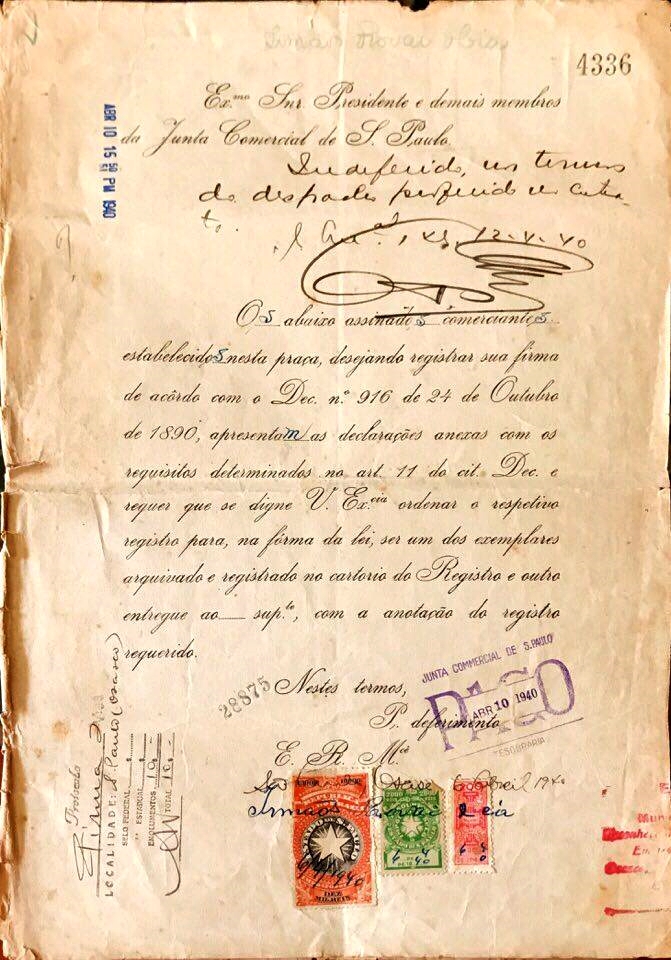 4336
Ex.mo Snr. Presidente e demais membros
da Junta Comercial de S. Paulo.
ABR 10 15 50 PM 1940
Indeferido, nos termos
do despacho proferido no
12-4-40
Os abaixo assinados comerciantes
estabelecidos nesta praça, desejando registrar sua firma
de acôrdo com o Dec. n.º 916 de 24 de Outubro
de 1890, apresentam as declarações anexas com os
requisitos determinados no art. 11 do cit. Dec. e
requer que se digne V. Ex.cia ordenar o respetivo
registro para, na fórma da lei, ser um dos exemplares
arquivado e registrado no cartorio do Registro e outro
entregue ao sup.to, com a anotação do registro
requerido.
28875
Nestes termos,
P. deferimento
E. R. M.cê
JUNTA COMMERCIAL DE S. PAULO
PAGO
ABR 10 1940
TESOURARIA
Abril 1940
Irmãos
DEZ
MIL REIS
6/4/1940
4 40
Protocolo
Firma
LOCALIDADE: S. Paulo (Osasco)
SELO FEDERAL $
" ESTADUAL $
EMOLUMENTOS 10 -
TOTAL 10 -